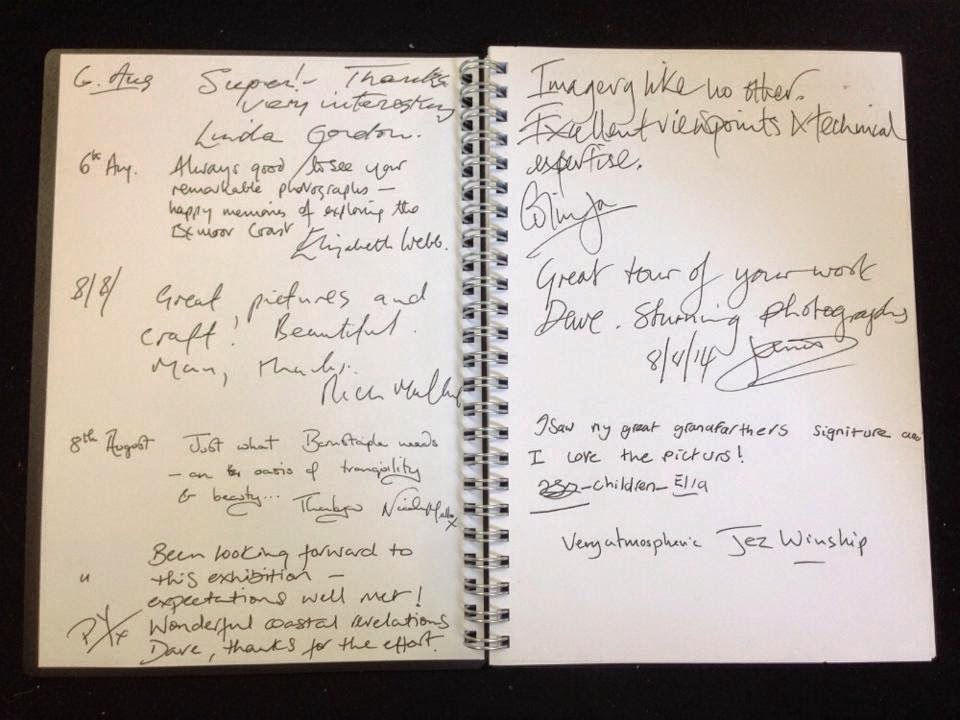 6. Aug Super! - Thanks
very interesting
Linda Gordon.
6th Aug. Always good to see your
remarkable photographs –
happy memories of exploring the
Exmoor Coast
Elizabeth Webb.
8/8/ Great pictures and
craft! Beautiful.
Man, thanks.
Rich
8th August Just what Barnstaple needs
– an oasis of tranquility
& beauty... Thankyou
Been looking forward to
" this exhibition –
expectations well met!
Wonderful coastal revelations
Dave, thanks for the effort.
Imagery like no other.
Excellent viewpoints & technical
expertise.
Great tour of your work
Dave. Stunning photographs
8/8/14
I saw my great grandfarthers signiture and
I love the picturs!
-children- Ella
Very atmospheric Jez Winship